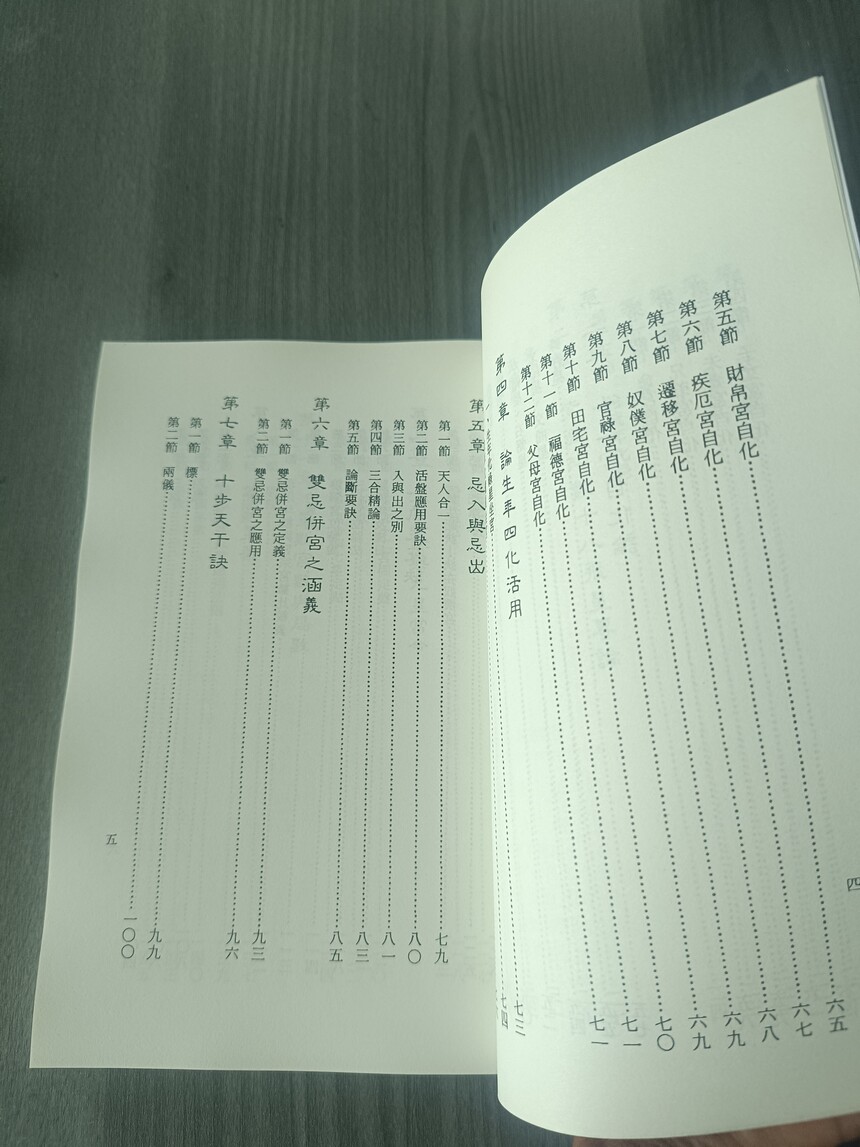 第五節 財帛宮自化………六五
第六節 疾厄宮自化………六七
第七節 遷移宮自化………六八
第八節 奴僕宮自化………六九
第九節 官祿宮自化………六九
第十節 田宅宮自化………七〇
第十一節 福德宮自化………七一
第十二節 父母宮自化………七一
第四章 論生年四化活用
七三
七四
四
第五章 忌入與忌出
第一節 天人合一………七九
第二節 活盤應用要訣………八〇
第三節 入與出之別………八一
第四節 三合精論………八三
第五節 論斷要訣………八五
第六章 雙忌併宮之涵義
第一節 雙忌併宮之定義………九三
第二節 雙忌併宮之應用………九六
第七章 十步天干訣
第一節 標………九九
第二節 兩儀………一〇〇
五